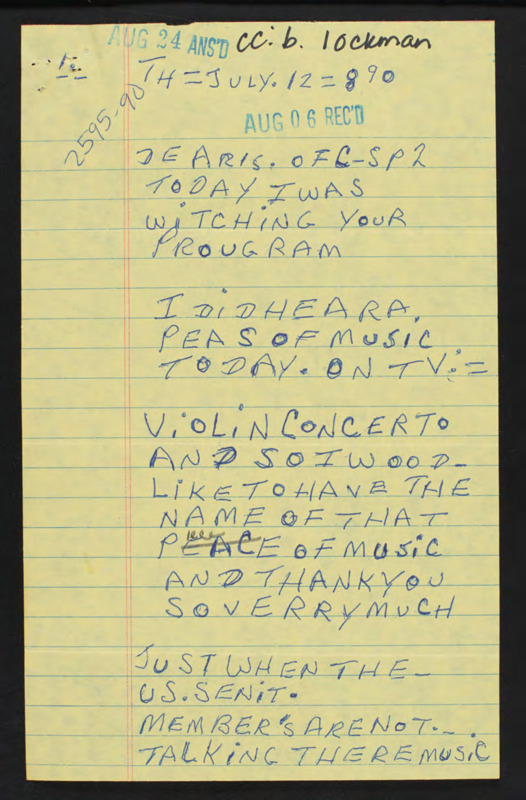 AUG 24 ANS'D cc. b. lockman
TH = JULY. 12 = 890
2595-90
AUG 06 REC'D
DEARIS. OF C-SP2
TODAY I WAS
WITCHING YOUR
PROUGRAM
I DID HEAR A.
PEAS OF MUSIC
TODAY. ON TV:=
VIOLIN CONCERTO
AND SO I WOOD-
LIKE TO HAVE THE
NAME OF THAT
PEACE OF MUSIC
AND THANK YOU
SO VERRY MUCH
JUST WHEN THE-
US. SENIT.
MEMBER'S ARE NOT.-.
TALKING THERE MUSIC